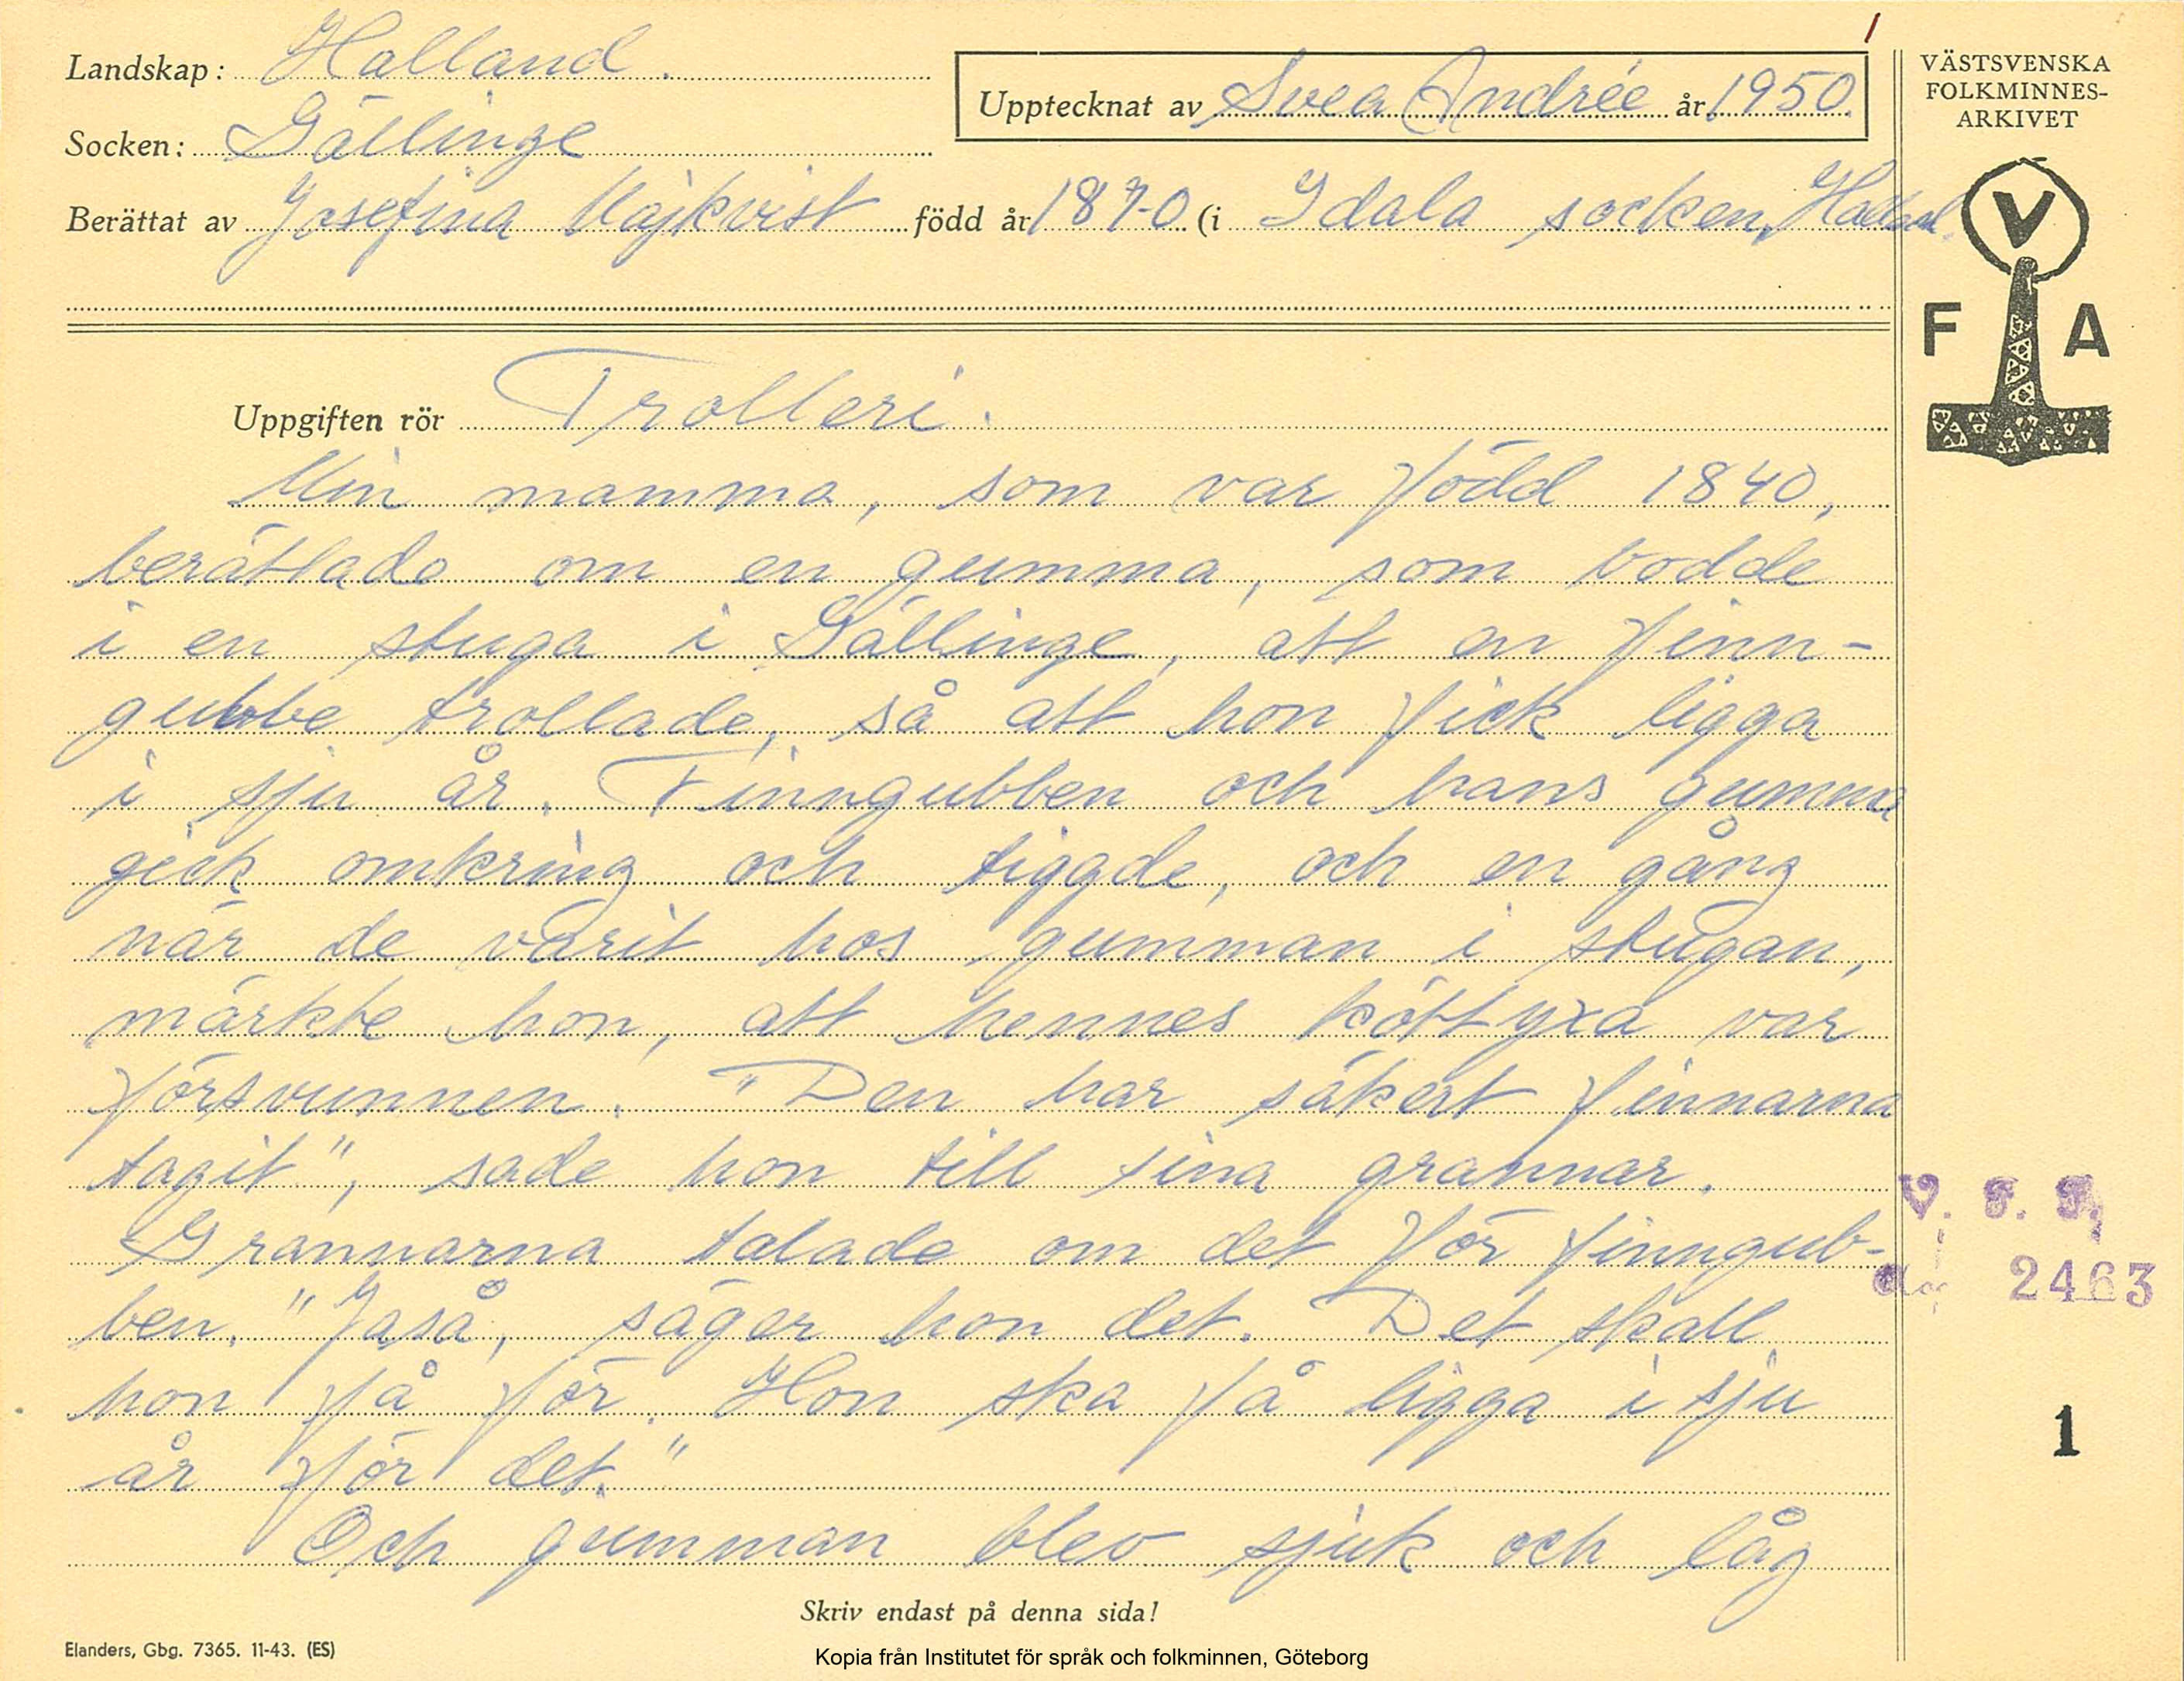 Landskap: Halland.
Socken: Gällinge
Upptecknat av Svea Andrée år 1950.
Berättat av Josefina Majkvist född år 1870 (i Idala socken, Halland.
Uppgiften rör Trolleri.
Min mamma, som var född 1840,
berättade om en gumma, som bodde
i en stuga i Gällinge, att en finn-
gubbe trollade, så att hon fick ligga
i sju år. Finngubben och hans gumma
gick omkring och tiggde, och en gång
när de varit hos gumman i stugan,
märkte hon, att hennes köttyxa var
försvunnen. "Den har säkert finnarna
tagit", sade hon till sina grannar.
Grannarna talade om det för finngub-
ben. "Jaså, säger hon det. Det skall
hon få för. Hon ska få ligga i sju
år för det."
Och gumman blev sjuk och låg
Skriv endast på denna sida!
Elanders, Gbg. 7365. 11-43. (ES)
Kopia från Institutet för språk och folkminnen, Göteborg
VÄSTSVENSKA
FOLKMINNES-
ARKIVET
V
F A
2463
1